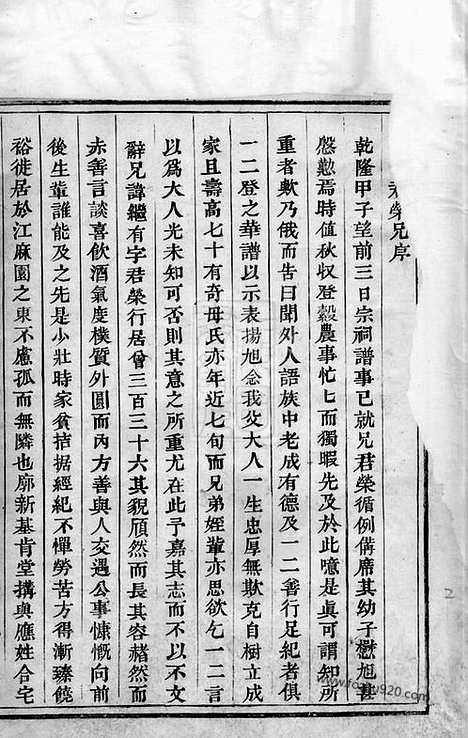 榮兄序
乾隆甲子望前三日宗祠譜事已就兄君榮循例僃席其幼子懋旭甚
慇懃焉時值秋収登穀農事忙匕而獨暇先及於此噫是眞可謂知所
重者歟乃俄而告曰聞外人語族中老成有德及一二善行足紀者俱
一二登之華譜以示表揚旭念我父大人一生忠厚無欺克自樹立成
家且壽高七十有奇母氏亦年近七旬而兄弟姪輩亦思欲乞一二言
以爲大人光未知可否則其意之所重尤在此予嘉其志而不以不文
辭兄諱繼有字君榮行居曾三百三十六其貌頎然而長其容赭然而
赤善言談喜飲酒氣度樸質外圓而内方善與人交遇公事慷慨向前
後生輩誰能及之先是少壯時家貧拮据經紀不憚勞苦方得漸臻饒
裕徙居於江麻園之東不慮孤而無隣也廓新基肯堂搆與應姓合宅
www.foxue920.com
2